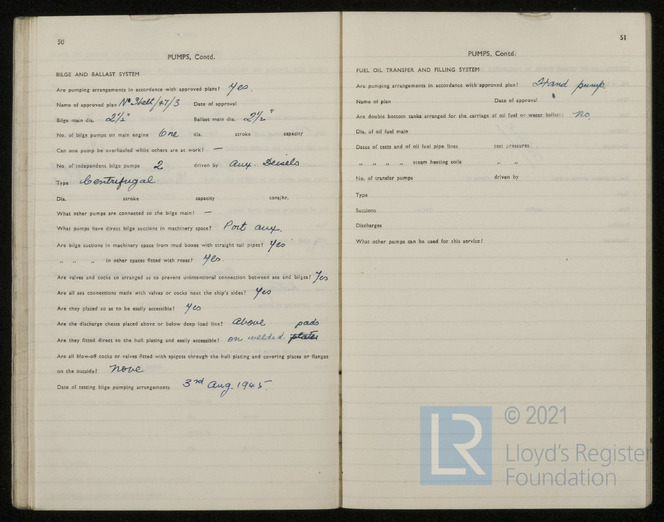 50
PUMPS, Contd.
BILGE AND BALLAST SYSTEM
Are pumping arrangements in accordance with approved plans? Yes.
Name of approved plan No Shell/47/3 Date of approval
Bilge main dia. 2½" Ballast main dia. 2½"
No. of bilge pumps on main engine One dia. stroke capacity
Can one pump be overhauled while others are at work? —
No. of independent bilge pumps 2 driven by aux. Deisels
Type Centrifugal
Dia. stroke capacity tons/hr.
What other pumps are connected to the bilge main? —
What pumps have direct bilge suctions in machinery space? Port aux.
Are bilge suctions in machinery space from mud boxes with straight tail pipes? Yes
,, ,, ,, in other spaces fitted with roses? Yes.
Are valves and cocks so arranged as to prevent unintentional connection between sea and bilges? Yes
Are all sea connections made with valves or cocks next the ship's sides? Yes
Are they placed so as to be easily accessible? Yes
Are the discharge chests placed above or below deep load line? Above pads
Are they fitted direct to the hull plating and easily accessible? on welded plates
Are all blow-off cocks or valves fitted with spigots through the hull plating and covering plates or flanges
on the outside? None
Date of testing bilge pumping arrangements 3rd Aug. 1945.
51
PUMPS, Contd.
FUEL OIL TRANSFER AND FILLING SYSTEM
Are pumping arrangements in accordance with approved plan? Hand pump
Name of plan Date of approval
Are double bottom tanks arranged for the carriage of oil fuel or water ballast? No.
Dia. of oil fuel main
Dates of tests and of oil fuel pipe lines test pressures
,, ,, ,, ,, steam heating coils ,, ,,
No. of transfer pumps driven by
Type
Suctions
Discharges
What other pumps can be used for this service?
LR
© 2021
Lloyd's Register
Foundation